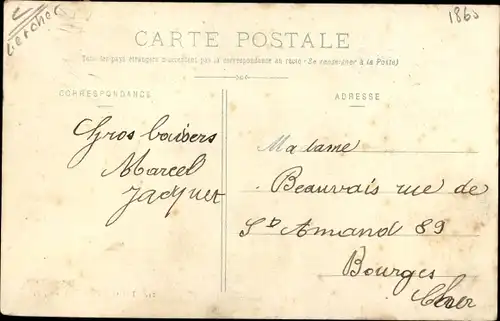 1860
CARTE POSTALE
Tous les pays étrangers n'acceptent pas la correspondance au recto (Se renseigner à la Poste)
CORRESPONDANCE
ADRESSE
Gros baisers
Marcel
Jacquet
Madame
Beauvais rue de
St Amand 89
Bourges
Cher